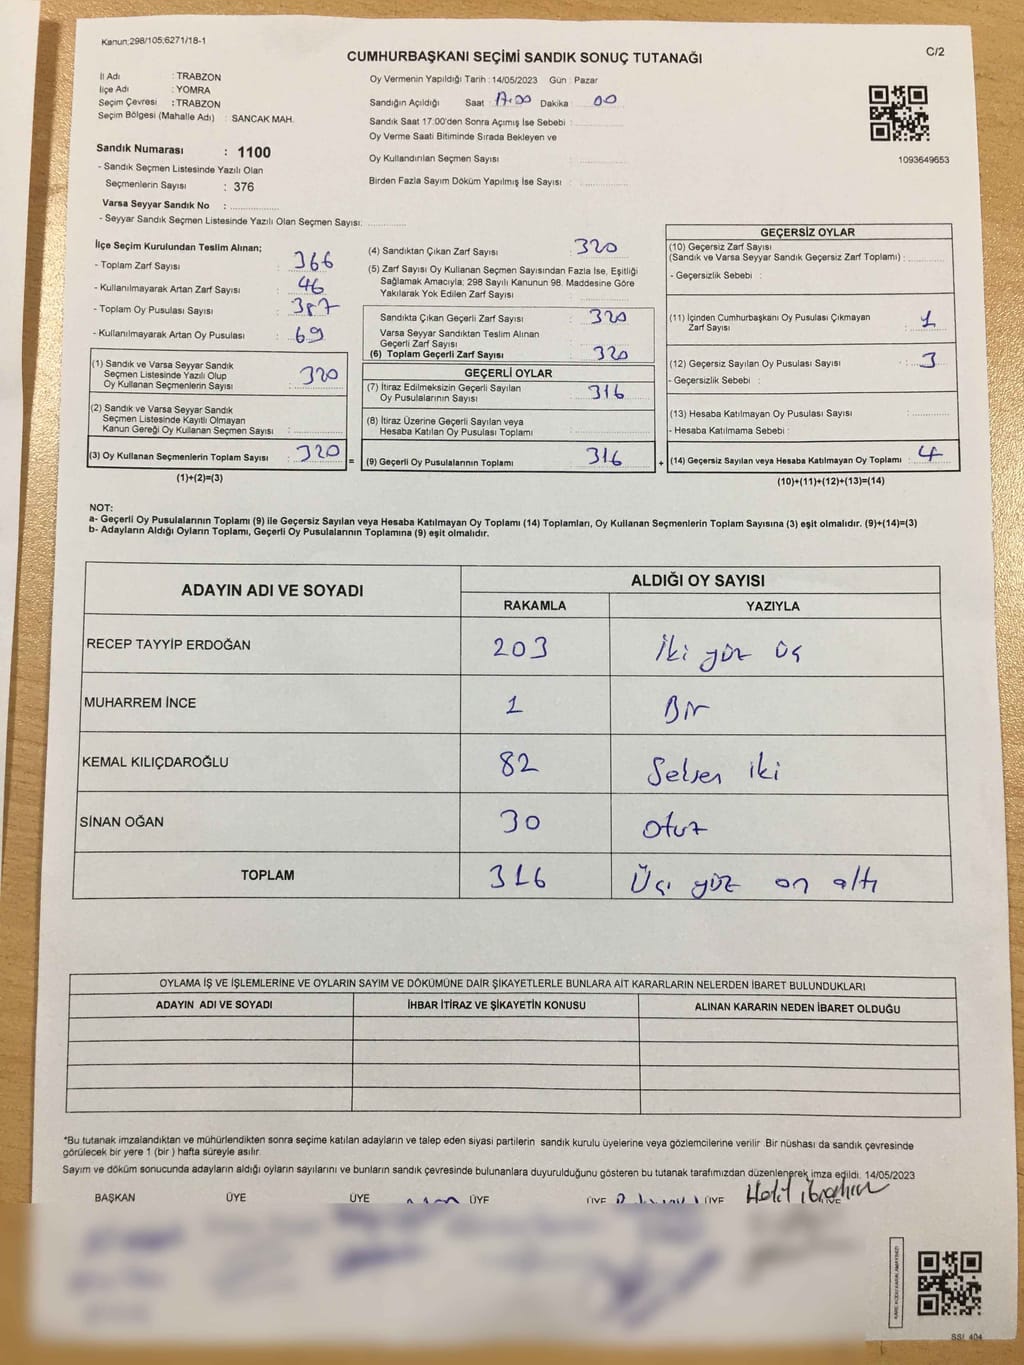 Kanun;298/105;6271/18-1
C/2
CUMHURBAŞKANI SEÇİMİ SANDIK SONUÇ TUTANAĞI
İl Adı : TRABZON
İlçe Adı : YOMRA
Seçim Çevresi : TRABZON
Seçim Bölgesi (Mahalle Adı) : SANCAK MAH.
Sandık Numarası : 1100
- Sandık Seçmen Listesinde Yazılı Olan
Seçmenlerin Sayısı : 376
Varsa Seyyar Sandık No :
- Seyyar Sandık Seçmen Listesinde Yazılı Olan Seçmen Sayısı:
Oy Vermenin Yapıldığı Tarih : 14/05/2023 Gün : Pazar
Sandığın Açıldığı Saat : 17:00 Dakika : 00
Sandık Saat 17:00'den Sonra Açımış İse Sebebi :
Oy Verme Saati Bitiminde Sırada Bekleyen ve
Oy Kullandırılan Seçmen Sayısı :
Birden Fazla Sayım Döküm Yapılmış İse Sayısı :
1093649653
İlçe Seçim Kurulundan Teslim Alınan;
- Toplam Zarf Sayısı : 366
- Kullanılmayarak Artan Zarf Sayısı : 46
- Toplam Oy Pusulası Sayısı : 387
- Kullanılmayarak Artan Oy Pusulası : 69
(1) Sandık ve Varsa Seyyar Sandık
Seçmen Listesinde Yazılı Olup
Oy Kullanan Seçmenlerin Sayısı : 320
(2) Sandık ve Varsa Seyyar Sandık
Seçmen Listesinde Kayıtlı Olmayan
Kanun Gereği Oy Kullanan Seçmen Sayısı :
(3) Oy Kullanan Seçmenlerin Toplam Sayısı : 320
(1)+(2)=(3)
=
(4) Sandıktan Çıkan Zarf Sayısı : 320
(5) Zarf Sayısı Oy Kullanan Seçmen Sayısından Fazla İse, Eşitliği
Sağlamak Amacıyla; 298 Sayılı Kanunun 98. Maddesine Göre
Yakılarak Yok Edilen Zarf Sayısı :
Sandıkta Çıkan Geçerli Zarf Sayısı : 320
Varsa Seyyar Sandıktan Teslim Alınan
Geçerli Zarf Sayısı :
(6) Toplam Geçerli Zarf Sayısı : 320
GEÇERLİ OYLAR
(7) İtiraz Edilmeksizin Geçerli Sayılan
Oy Pusulalarının Sayısı : 316
(8) İtiraz Üzerine Geçerli Sayılan veya
Hesaba Katılan Oy Pusulası Toplamı :
(9) Geçerli Oy Pusulalarının Toplamı : 316
+
GEÇERSİZ OYLAR
(10) Geçersiz Zarf Sayısı
(Sandık ve Varsa Seyyar Sandık Geçersiz Zarf Toplamı) :
- Geçersizlik Sebebi :
(11) İçinden Cumhurbaşkanı Oy Pusulası Çıkmayan
Zarf Sayısı : 1
(12) Geçersiz Sayılan Oy Pusulası Sayısı : 3
- Geçersizlik Sebebi :
(13) Hesaba Katılmayan Oy Pusulası Sayısı :
- Hesaba Katılmama Sebebi :
(14) Geçersiz Sayılan veya Hesaba Katılmayan Oy Toplamı : 4
(10)+(11)+(12)+(13)=(14)
NOT:
a- Geçerli Oy Pusulalarının Toplamı (9) ile Geçersiz Sayılan veya Hesaba Katılmayan Oy Toplamı (14) Toplamları, Oy Kullanan Seçmenlerin Toplam Sayısına (3) eşit olmalıdır. (9)+(14)=(3)
b- Adayların Aldığı Oyların Toplamı, Geçerli Oy Pusulalarının Toplamına (9) eşit olmalıdır.
ADAYIN ADI VE SOYADI ALDIĞI OY SAYISI
RAKAMLA YAZIYLA
RECEP TAYYİP ERDOĞAN 203 İki yüz üç
MUHARREM İNCE 1 Bir
KEMAL KILIÇDAROĞLU 82 Selsen iki
SİNAN OĞAN 30 otuz
TOPLAM 316 Üç yüz on altı
OYLAMA İŞ VE İŞLEMLERİNE VE OYLARIN SAYIM VE DÖKÜMÜNE DAİR ŞİKAYETLERLE BUNLARA AİT KARARLARIN NELERDEN İBARET BULUNDUKLARI
ADAYIN ADI VE SOYADI İHBAR İTİRAZ VE ŞİKAYETİN KONUSU ALINAN KARARIN NEDEN İBARET OLDUĞU
*Bu tutanak imzalandıktan ve mühürlendikten sonra seçime katılan adayların ve talep eden siyasi partilerin sandık kurulu üyelerine veya gözlemcilerine verilir .Bir nüshası da sandık çevresinde
görülecek bir yere 1 (bir ) hafta süreyle asılır.
Sayım ve döküm sonucunda adayların aldığı oyların sayılarını ve bunların sandık çevresinde bulunanlara duyurulduğunu gösteren bu tutanak tarafımızdan düzenlenerek imza edildi. 14/05/2023
BAŞKAN ÜYE ÜYE ÜYE ÜYE ÜYE Halil ibrahim
SSI_404